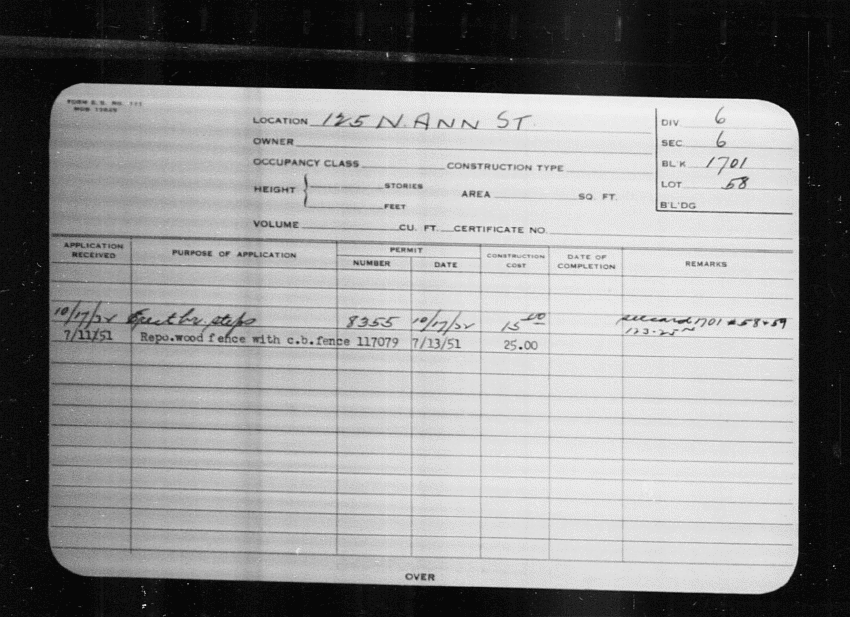 FORM
LOCATION 125 N. ANN ST.
DIV. 6
OWNER
SEC. 6
OCCUPANCY CLASS CONSTRUCTION TYPE
BL'K 1701
HEIGHT STORIES AREA SQ. FT.
LOT 58
FEET
B'L'DG
VOLUME CU. FT. CERTIFICATE NO.
APPLICATION RECEIVED PURPOSE OF APPLICATION PERMIT NUMBER DATE CONSTRUCTION COST DATE OF COMPLETION REMARKS
10/17/32 Erect br. steps 8355 10/17/32 15 00 see card 1701 58 + 59
123-25 N
7/11/51 Repo.wood fence with c.b.fence 117079 7/13/51 25.00
OVER